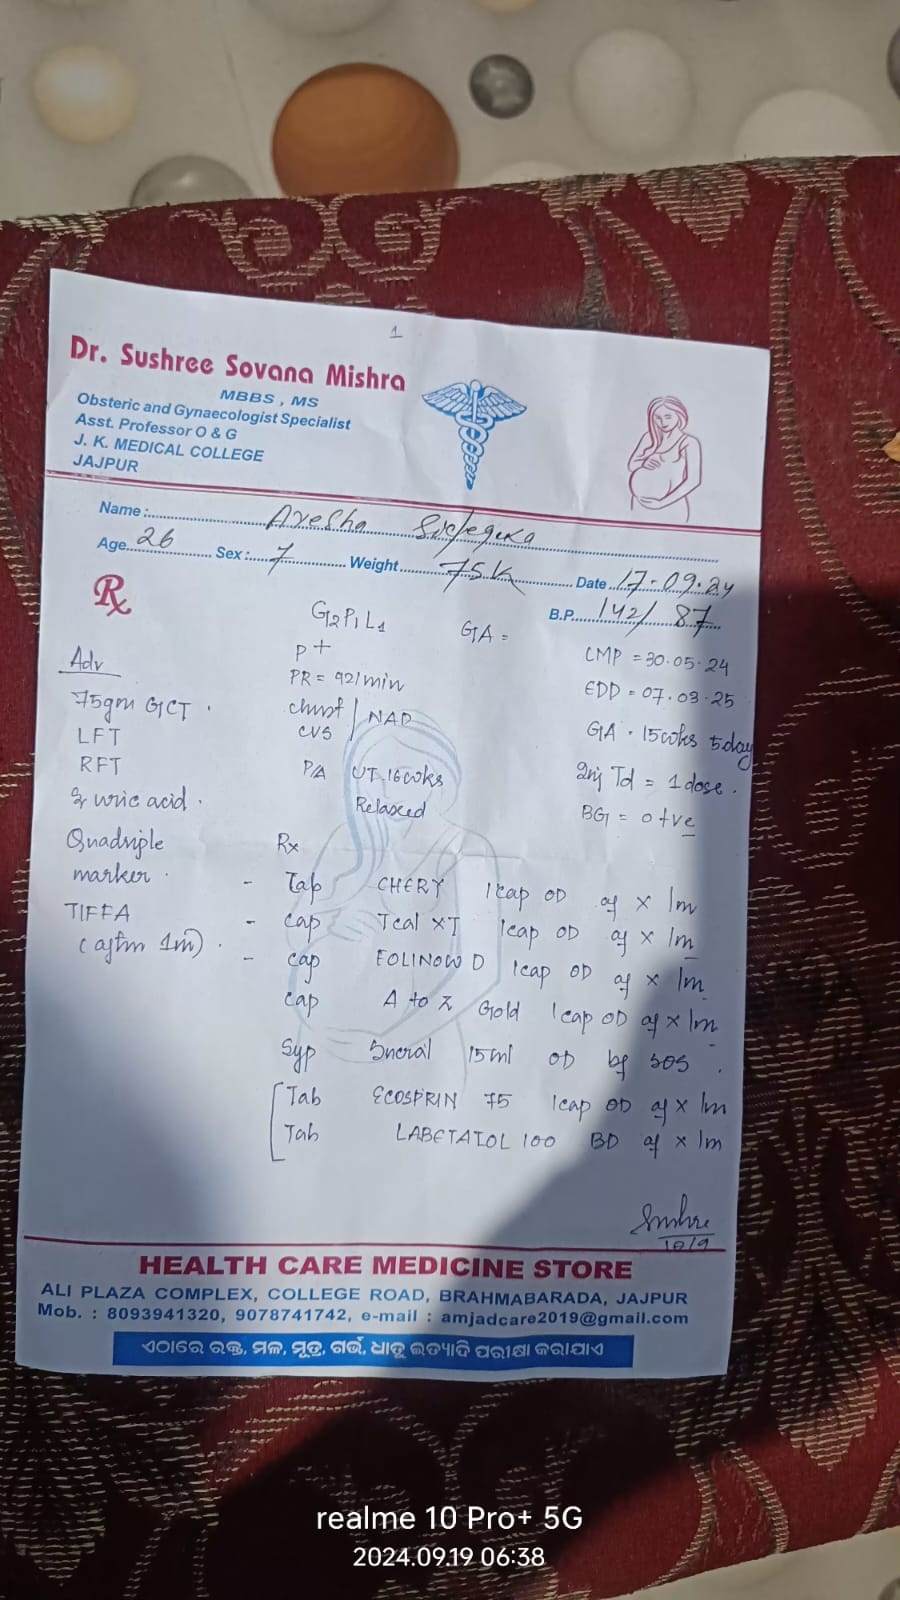 1
Dr. Sushree Sovana Mishra
MBBS, MS
Obsteric and Gynaecologist Specialist
Asst. Professor O & G
J. K. MEDICAL COLLEGE
JAJPUR
Name : Ayesha
Age 26 Sex : F Weight 75K Date 17-09-24
Rx B.P. 142/87
G2P1L1 GA =
P+
PR = 92/min
chest / NAD
CVS
P/A UT. 16wks
Relaxed
LMP = 30.05.24
EDD = 07.03.25
GA . 15wks 5day
Inj Td = 1 dose .
BG = O +ve
Adv
75gm GCT .
LFT
RFT
Sr uric acid .
Quadriple
marker .
TIFFA
( after 1m) .
Rx
- Tab CHERY 1cap OD af x 1m
- cap Tcal XT 1cap OD af x 1m
- cap FOLINOW D 1cap OD af x 1m
cap A to Z Gold 1cap OD af x 1m
Syp 15ml OD bf SOS .
Tab ECOSPRIN 75 1cap OD af x 1m
Tab LABETATOL 100 BD af x 1m
HEALTH CARE MEDICINE STORE
ALI PLAZA COMPLEX, COLLEGE ROAD, BRAHMABARADA, JAJPUR
Mob. : 8093941320, 9078741742, e-mail : amjadcare2019@gmail.com
ଏଠାରେ ରକ୍ତ, ମଳ, ମୂତ୍ର, ଗର୍ଭ, ଧାତୁ ଇତ୍ୟାଦି ପରୀକ୍ଷା କରାଯାଏ
realme 10 Pro+ 5G
2024.09.19 06:38